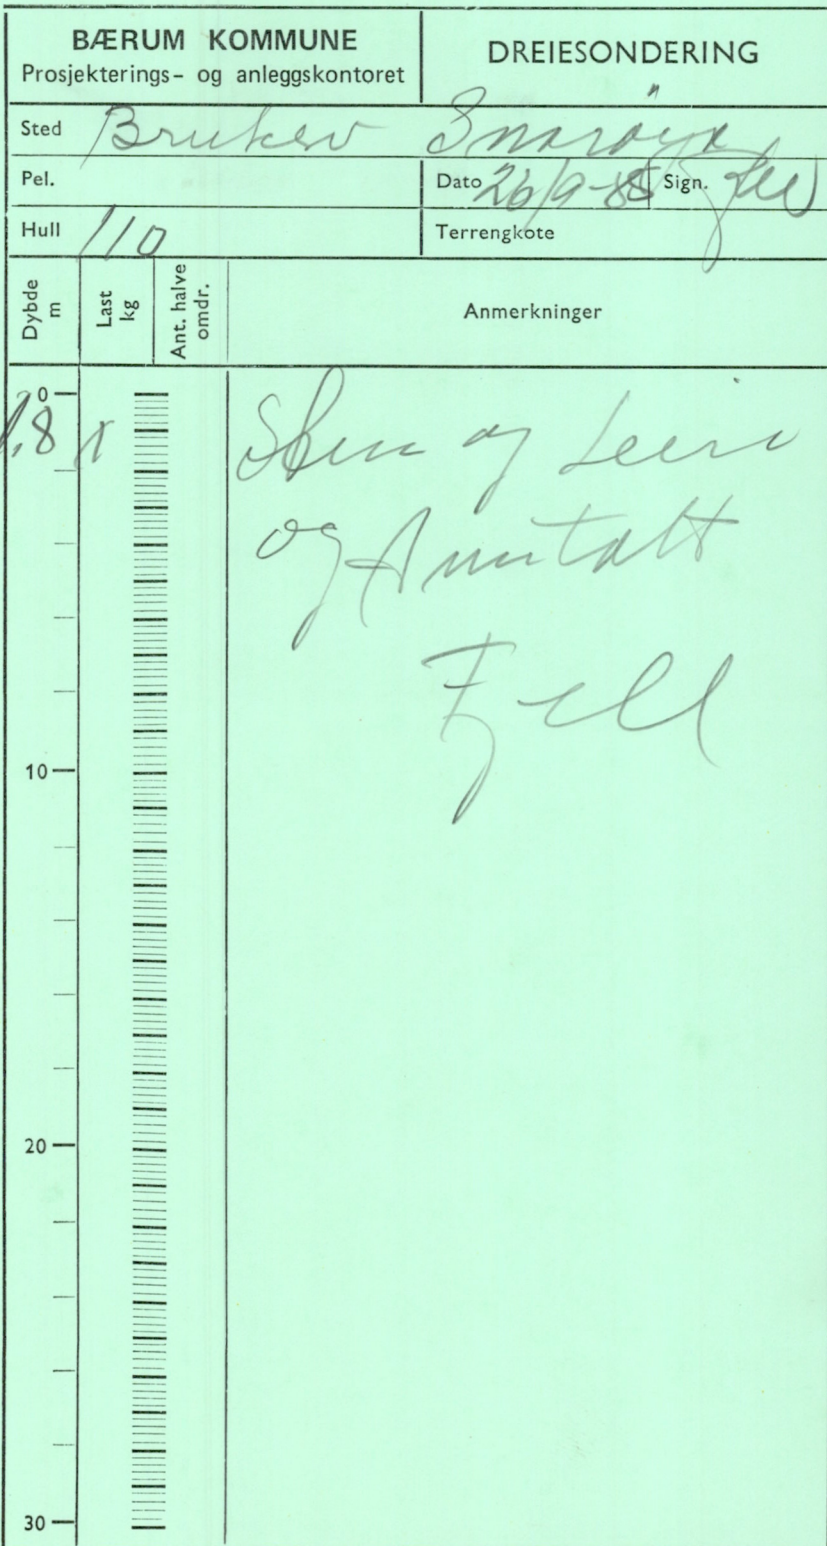 BÆRUM KOMMUNE
Prosjekterings- og anleggskontoret
DREIESONDERING
Sted Snarøya
Pel.
Dato 26/9-85 Sign.
Hull 110
Terrengkote
Dybde m
Last kg
Ant. halve omdr.
Anmerkninger
0
1,8 x
Sten og Leire
og Anntatt
Fjell
10
20
30